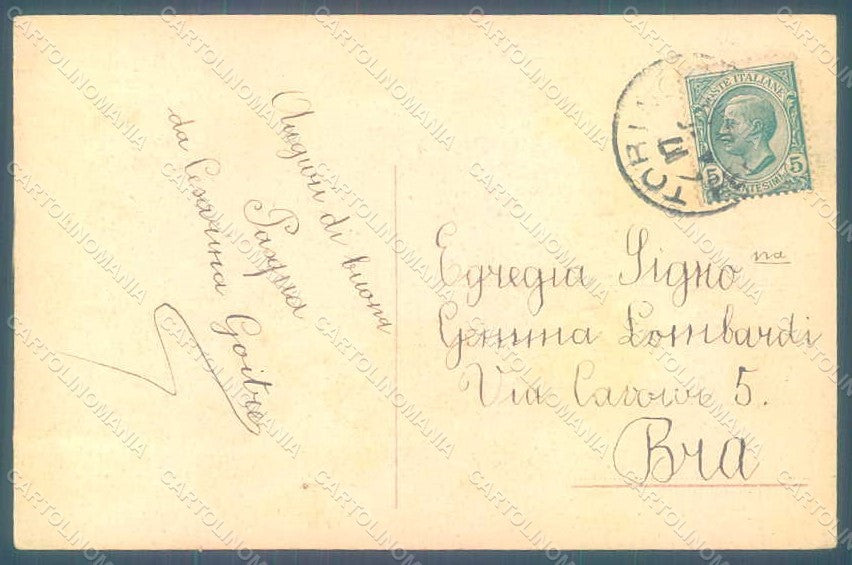 Auguri di buona
Pasqua
da Cesarina Goitre
TORINO
POSTE ITALIANE
5 CENTESIMI 5
Egregia Signo na
Gemma Lombardi
Via Cavour 5.
Bra
CARTOLINOMANIA